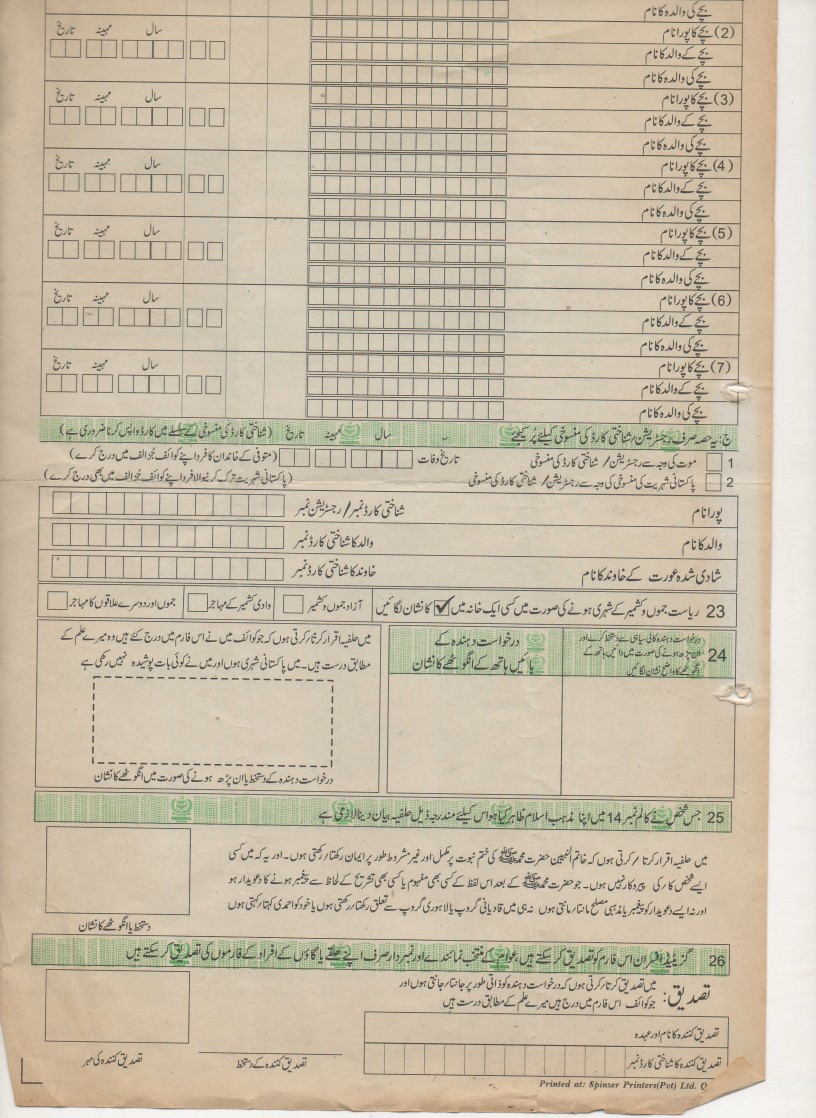 بچے کی والدہ کا نام
(2) بچے کا پورا نام
سال مہینہ تاریخ
بچے کے والد کا نام
بچے کی والدہ کا نام
(3) بچے کا پورا نام
سال مہینہ تاریخ
بچے کے والد کا نام
بچے کی والدہ کا نام
(4) بچے کا پورا نام
سال مہینہ تاریخ
بچے کے والد کا نام
بچے کی والدہ کا نام
(5) بچے کا پورا نام
سال مہینہ تاریخ
بچے کے والد کا نام
بچے کی والدہ کا نام
(6) بچے کا پورا نام
سال مہینہ تاریخ
بچے کے والد کا نام
بچے کی والدہ کا نام
(7) بچے کا پورا نام
سال مہینہ تاریخ
بچے کے والد کا نام
بچے کی والدہ کا نام
ج: یہ حصہ صرف رجسٹریشن/شناختی کارڈ کی منسوخی کیلئے پُر کیجئے سال مہینہ تاریخ (شناختی کارڈ کی منسوخی کے سلسلے میں کارڈ واپس کرنا ضروری ہے)
1 موت کی وجہ سے رجسٹریشن/ شناختی کارڈ کی منسوخی تاریخ وفات (متوفی کے خاندان کا فرد اپنے کوائف جُز الف میں درج کرے)
2 پاکستانی شہریت کی منسوخی کی وجہ سے رجسٹریشن/ شناختی کارڈ کی منسوخی (پاکستانی شہریت ترک کرنیوالا فرد اپنے کوائف جُز الف میں بھی درج کرے)
پورا نام شناختی کارڈ نمبر/ رجسٹریشن نمبر
والد کا نام والد کا شناختی کارڈ نمبر
شادی شدہ عورت کے خاوند کا نام خاوند کا شناختی کارڈ نمبر
23 ریاست جموں و کشمیر کے شہری ہونے کی صورت میں کسی ایک خانہ میں ✓ کا نشان لگائیں آزاد جموں و کشمیر وادی کشمیر کے مہاجر جموں اور دوسرے علاقوں کا مہاجر
24 درخواست دہندہ کالی سیاہی سے دستخط کرے اور
ان پڑھ ہونے کی صورت میں دائیں ہاتھ کے
انگوٹھے کا واضح نشان لگائیں
درخواست دہندہ کے
بائیں ہاتھ کے انگوٹھے کا نشان
میں حلفیہ اقرار کرتا/کرتی ہوں کہ جو کوائف میں نے اس فارم میں درج کئے ہیں وہ میرے علم کے
مطابق درست ہیں۔ میں پاکستانی شہری ہوں اور میں نے کوئی بات پوشیدہ نہیں رکھی ہے
درخواست دہندہ کے دستخط یا ان پڑھ ہونے کی صورت میں انگوٹھے کا نشان
25 جس شخص نے کالم نمبر 14 میں اپنا مذہب اسلام ظاہر کیا ہو اس کیلئے مندرجہ ذیل حلفیہ بیان دینا لازمی ہے
میں حلفیہ اقرار کرتا/کرتی ہوں کہ خاتم النبیین حضرت محمد ﷺ کی ختم نبوت پر مکمل اور غیر مشروط طور پر ایمان رکھتا/رکھتی ہوں۔ اور یہ کہ میں کسی
ایسے شخص کا/کی پیروکار نہیں ہوں۔ جو حضرت محمد ﷺ کے بعد اس لفظ کے کسی بھی مفہوم یا کسی بھی تشریح کے لحاظ سے پیغمبر ہونے کا دعویدار ہو
اور نہ ایسے دعویدار کو پیغمبر یا مذہبی مصلح مانتا/مانتی ہوں نہ ہی میں قادیانی گروپ یا لاہوری گروپ سے تعلق رکھتا/رکھتی ہوں یا خود کو احمدی کہتا/کہتی ہوں
دستخط یا انگوٹھے کا نشان
26 گزیٹیڈ افسران اس فارم کو تصدیق کر سکتے ہیں، عوام کے منتخب نمائندے اور نمبردار صرف اپنے حلقے یا گاؤں کے افراد کے فارموں کی تصدیق کر سکتے ہیں
تصدیق: میں تصدیق کرتا/کرتی ہوں کہ درخواست دہندہ کو ذاتی طور پر جانتا/جانتی ہوں اور
جو کوائف اس فارم میں درج ہیں میرے علم کے مطابق درست ہیں
تصدیق کنندہ کا نام اور عہدہ
تصدیق کنندہ کا شناختی کارڈ نمبر
تصدیق کنندہ کے دستخط
تصدیق کنندہ کی مہر
Printed at: Spinzer Printers(Pvt) Ltd. Q